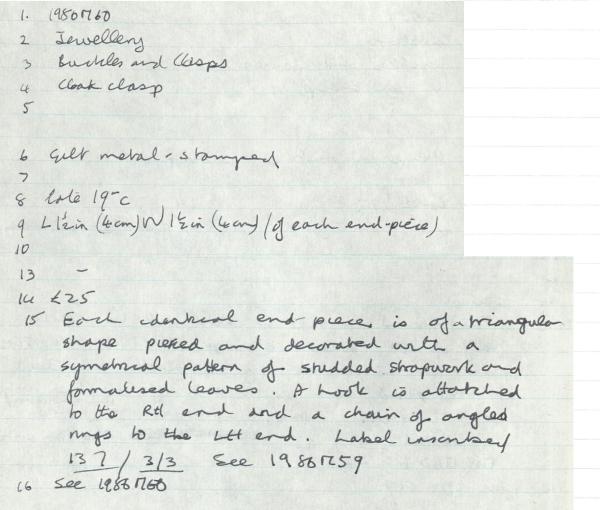 1. 1980M60
2 Jewellery
3 Buckles and Clasps
4 Cloak clasp
5
6 Gilt metal - stamped
7
8 late 19thc
9 L 1½in (4cm) W 1½in (4cm) (of each end-piece)
10
13 -
14 £25
15 Each identical end piece is of a triangular
shape pierced and decorated with a
symetrical pattern of studded strapwork and
formalised leaves. A hook is attatched
to the RH end and a chain of angled
rings to the LH end. Label inscribed
137 / 3/3 See 1980M59
16 See 1980M60